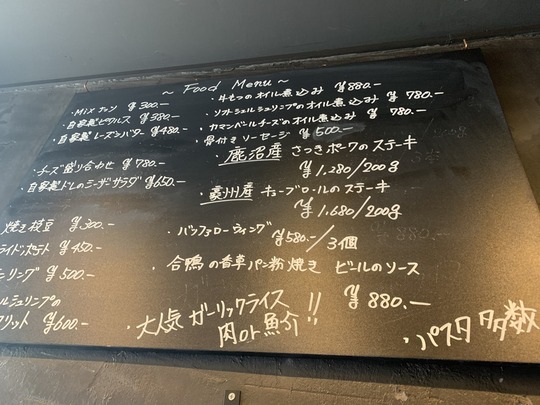 ~ Food Menu ~
・Mix ナッツ ¥300.-
・自家製ピクルス ¥380.-
・自家製 レーズンバター ¥480.-
・チーズ盛り合わせ ¥780.-
・自家製ドレのシーザーサラダ ¥650.-
焼き枝豆 ¥300.-
ライドポテト ¥450.-
ニリング ¥500.-
ルシュリンプの
フリット ¥600.-
・牛もつのオイル煮込み ¥880.-
・ソフトシェルシュリンプのオイル煮込み ¥780.-
・カマンベールチーズのオイル煮込み ¥780.-
・骨付きソーセージ ¥500.-
・鹿沼産 さつきポークのステーキ
¥1,280/200g
・豪州産 キューブロールのステーキ
¥1,680/200g
・バッファローウィング
¥580.-/3個
・合鴨の香草パン粉焼き ビールのソース
¥880.-
・大人気 ガーリックライス
肉or魚介 !!
・パスタ多数